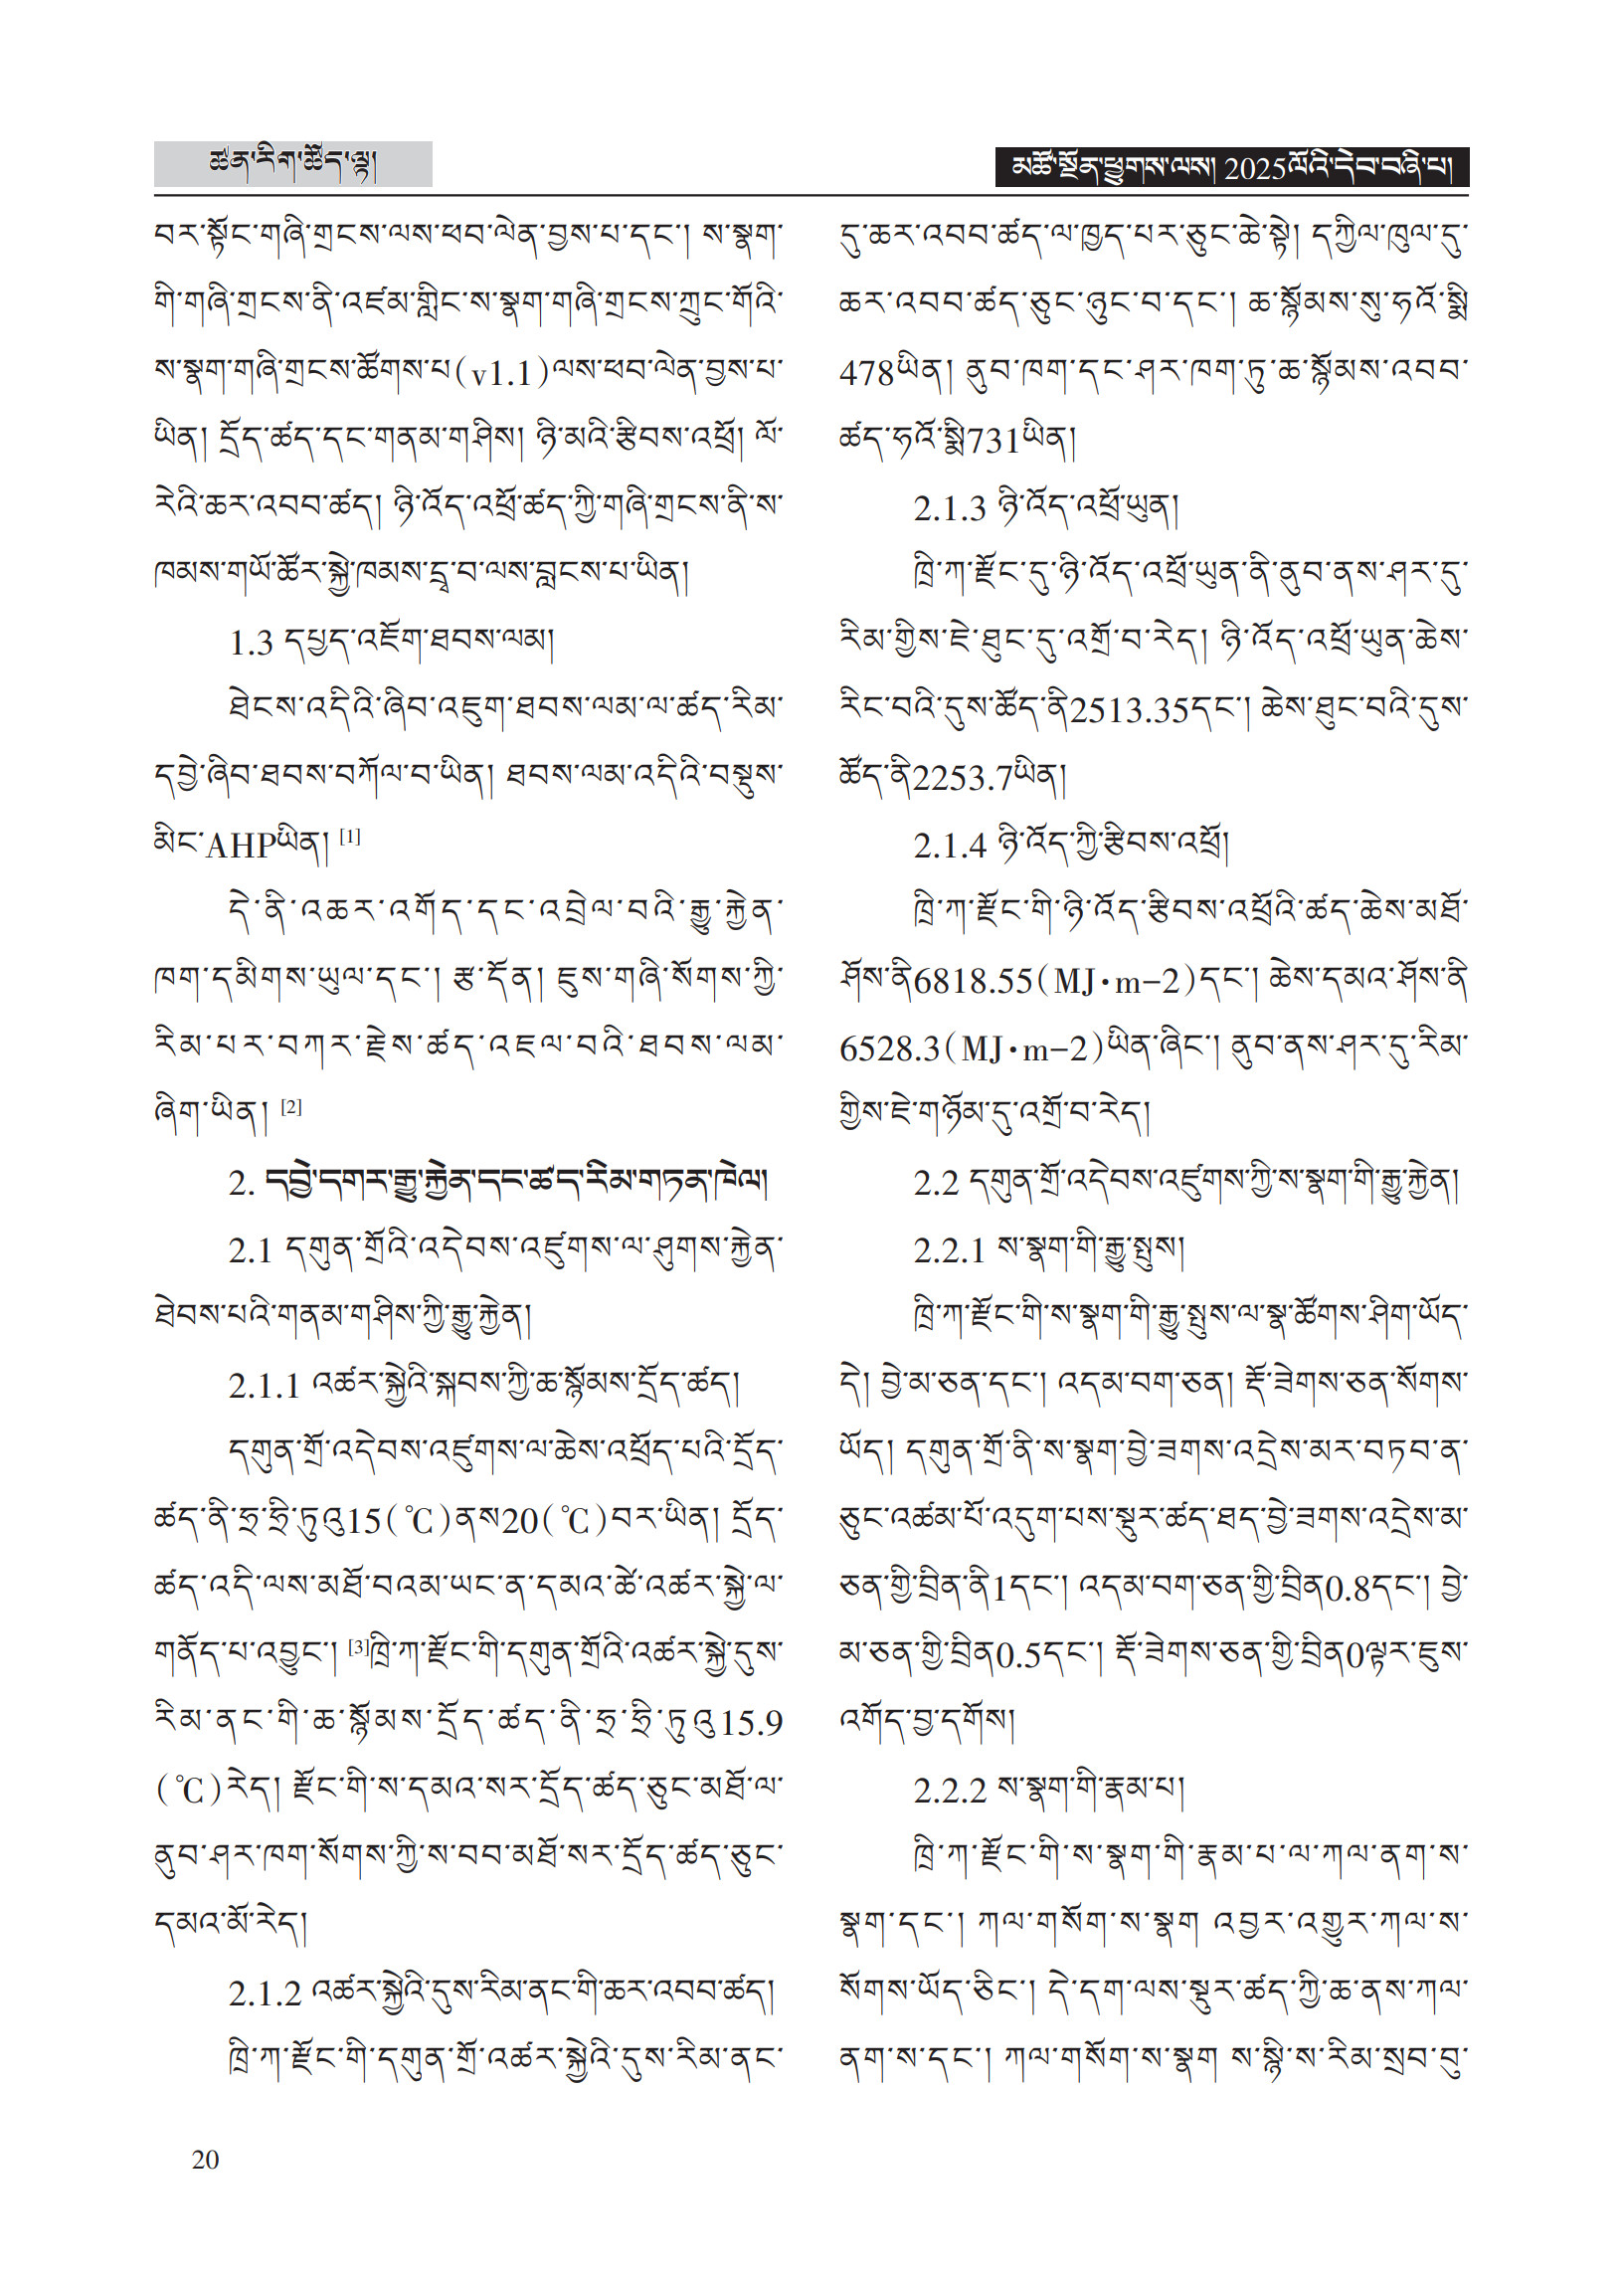 ཚན་རིག་ཚོད་ལྟ།
མཚོ་སྔོན་ཕྱུགས་ལས། 2025ལོའི་དེབ་བཞི་པ།
བར་སྟོང་གཞི་གྲངས་ལས་ཕབ་ལེན་བྱས་པ་དང་། ས་སྣག་
གི་གཞི་གྲངས་ནི་འཛམ་གླིང་ས་སྣག་གཞི་གྲངས་ཀྲུང་གོའི་
ས་སྣག་གཞི་གྲངས་ཚོགས་པ(v1.1)ལས་ཕབ་ལེན་བྱས་པ་
ཡིན། དྲོད་ཚད་དང་གནམ་གཤིས། ཉི་མའི་རྩིབས་འཕྲོ། ལོ་
རེའི་ཆར་འབབ་ཚད། ཉི་འོད་འཕྲོ་ཚད་ཀྱི་གཞི་གྲངས་ནི་ས་
ཁམས་གཡོ་ཚོར་སྐྱེ་ཁམས་དྲྭ་བ་ལས་བླངས་པ་ཡིན།
1.3 དཔྱད་འཇོག་ཐབས་ལམ།
ཐེངས་འདིའི་ཞིབ་འཇུག་ཐབས་ལམ་ལ་ཚད་རིམ་
དབྱེ་ཞིབ་ཐབས་བཀོལ་བ་ཡིན། ཐབས་ལམ་འདིའི་བསྡུས་
མིང་AHPཡིན། [1]
དེ་ནི་འཆར་འགོད་དང་འབྲེལ་བའི་རྒྱུ་རྐྱེན་
ཁག་དམིགས་ཡུལ་དང་། རྩ་དོན། ཇུས་གཞི་སོགས་ཀྱི་
རིམ་པར་བཀར་རྗེས་ཚད་འཇལ་བའི་ཐབས་ལམ་
ཞིག་ཡིན། [2]
2. དབྱེ་དགར་རྒྱུ་རྐྱེན་དང་ཚད་རིམ་གཏན་ཁེལ།
2.1 དགུན་གྲོའི་འདེབས་འཛུགས་ལ་ཤུགས་རྐྱེན་
ཐེབས་པའི་གནམ་གཤིས་ཀྱི་རྒྱུ་རྐྱེན།
2.1.1 འཚར་སྐྱེའི་སྐབས་ཀྱི་ཆ་སྙོམས་དྲོད་ཚད།
དགུན་གྲོ་འདེབས་འཛུགས་ལ་ཆེས་འཕྲོད་པའི་དྲོད་
ཚད་ནི་ཧྲ་ཧྲི་ཏུའུ15(℃)ནས20(℃)བར་ཡིན། དྲོད་
ཚད་འདི་ལས་མཐོ་བའམ་ཡང་ན་དམའ་ཚེ་འཚར་སྐྱེ་ལ་
གནོད་པ་འབྱུང་། [3]ཁྲི་ཀ་རྫོང་གི་དགུན་གྲོའི་འཚར་སྐྱེ་དུས་
རིམ་ནང་གི་ཆ་སྙོམས་དྲོད་ཚད་ནི་ཧྲ་ཧྲི་ཏུའུ15.9
(℃)རེད། རྫོང་གི་ས་དམའ་སར་དྲོད་ཚད་ཅུང་མཐོ་ལ་
ནུབ་ཤར་ཁག་སོགས་ཀྱི་ས་བབ་མཐོ་སར་དྲོད་ཚད་ཅུང་
དམའ་མོ་རེད།
2.1.2 འཚར་སྐྱེའི་དུས་རིམ་ནང་གི་ཆར་འབབ་ཚད།
ཁྲི་ཀ་རྫོང་གི་དགུན་གྲོ་འཚར་སྐྱེའི་དུས་རིམ་ནང་
དུ་ཆར་འབབ་ཚད་ལ་ཁྱད་པར་ཅུང་ཆེ་སྟེ། དཀྱིལ་ཁུལ་དུ་
ཆར་འབབ་ཚད་ཅུང་ཉུང་བ་དང་། ཆ་སྙོམས་སུ་ཧའོ་སྨི
478ཡིན། ནུབ་ཁག་དང་ཤར་ཁག་ཏུ་ཆ་སྙོམས་འབབ་
ཚད་ཧའོ་སྨི731ཡིན།
2.1.3 ཉི་འོད་འཕྲོ་ཡུན།
ཁྲི་ཀ་རྫོང་དུ་ཉི་འོད་འཕྲོ་ཡུན་ནི་ནུབ་ནས་ཤར་དུ་
རིམ་གྱིས་ཇེ་ཐུང་དུ་འགྲོ་བ་རེད། ཉི་འོད་འཕྲོ་ཡུན་ཆེས་
རིང་བའི་དུས་ཚོད་ནི2513.35དང་། ཆེས་ཐུང་བའི་དུས་
ཚོད་ནི2253.7ཡིན།
2.1.4 ཉི་འོད་ཀྱི་རྩིབས་འཕྲོ།
ཁྲི་ཀ་རྫོང་གི་ཉི་འོད་རྩིབས་འཕྲོའི་ཚད་ཆེས་མཐོ་
ཤོས་ནི6818.55(MJ·m-2)དང་། ཆེས་དམའ་ཤོས་ནི
6528.3(MJ·m-2)ཡིན་ཞིང་། ནུབ་ནས་ཤར་དུ་རིམ་
གྱིས་ཇེ་གཉོམ་དུ་འགྲོ་བ་རེད།
2.2 དགུན་གྲོ་འདེབས་འཛུགས་ཀྱི་ས་སྣག་གི་རྒྱུ་རྐྱེན།
2.2.1 ས་སྣག་གི་རྒྱུ་སྤུས།
ཁྲི་ཀ་རྫོང་གི་ས་སྣག་གི་རྒྱུ་སྤུས་ལ་སྣ་ཚོགས་ཤིག་ཡོད་
དེ། བྱེ་མ་ཅན་དང་། འདམ་བག་ཅན། རྡོ་ཟེགས་ཅན་སོགས་
ཡོད། དགུན་གྲོ་ནི་ས་སྣག་བྱེ་ཟགས་འདྲེས་མར་བཏབ་ན་
ཅུང་འཚམ་པོ་འདུག་པས་སྡུར་ཚད་ཐད་བྱེ་ཟགས་འདྲེས་མ་
ཅན་གྱི་བྲིན་ནི1དང་། འདམ་བག་ཅན་གྱི་བྲིན0.8དང་། བྱེ་
མ་ཅན་གྱི་བྲིན0.5དང་། རྡོ་ཟེགས་ཅན་གྱི་བྲིན0ལྟར་ཇུས་
འགོད་བྱ་དགོས།
2.2.2 ས་སྣག་གི་རྣམ་པ།
ཁྲི་ཀ་རྫོང་གི་ས་སྣག་གི་རྣམ་པ་ལ་ཀལ་ནག་ས་
སྣག་དང་། ཀལ་གསོག་ས་སྣག འབྱར་འགྱུར་ཀལ་ས་
སོགས་ཡོད་ཅིང་། དེ་དག་ལས་སྡུར་ཚད་ཀྱི་ཆ་ནས་ཀལ་
ནག་ས་དང་། ཀལ་གསོག་ས་སྣག ས་སྙི་ས་རིམ་སྲབ་བུ་
20